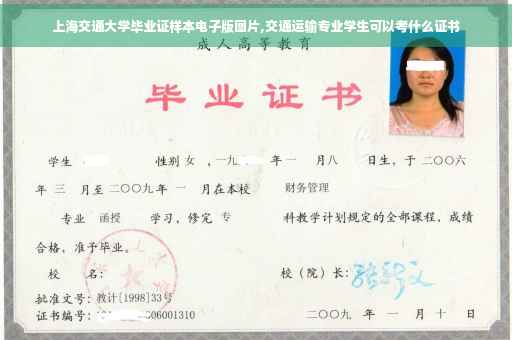 上海交通大学毕业证样本电子版图片,交通运输专业学生可以考什么证书
成人高等教育
毕业证书
学生 性别 女 ，一九 年 一 月 八 日生，于 二〇〇六
年 三 月至 二〇〇九 年 一 月在本校 财务管理
专业 函授 学习，修完 专 科教学计划规定的全部课程，成绩
合格，准予毕业。
校 名： 校（院）长：
批准文号：教计[1998]33号
证书编号： 06001310 二〇〇九 年 一 月 十 日